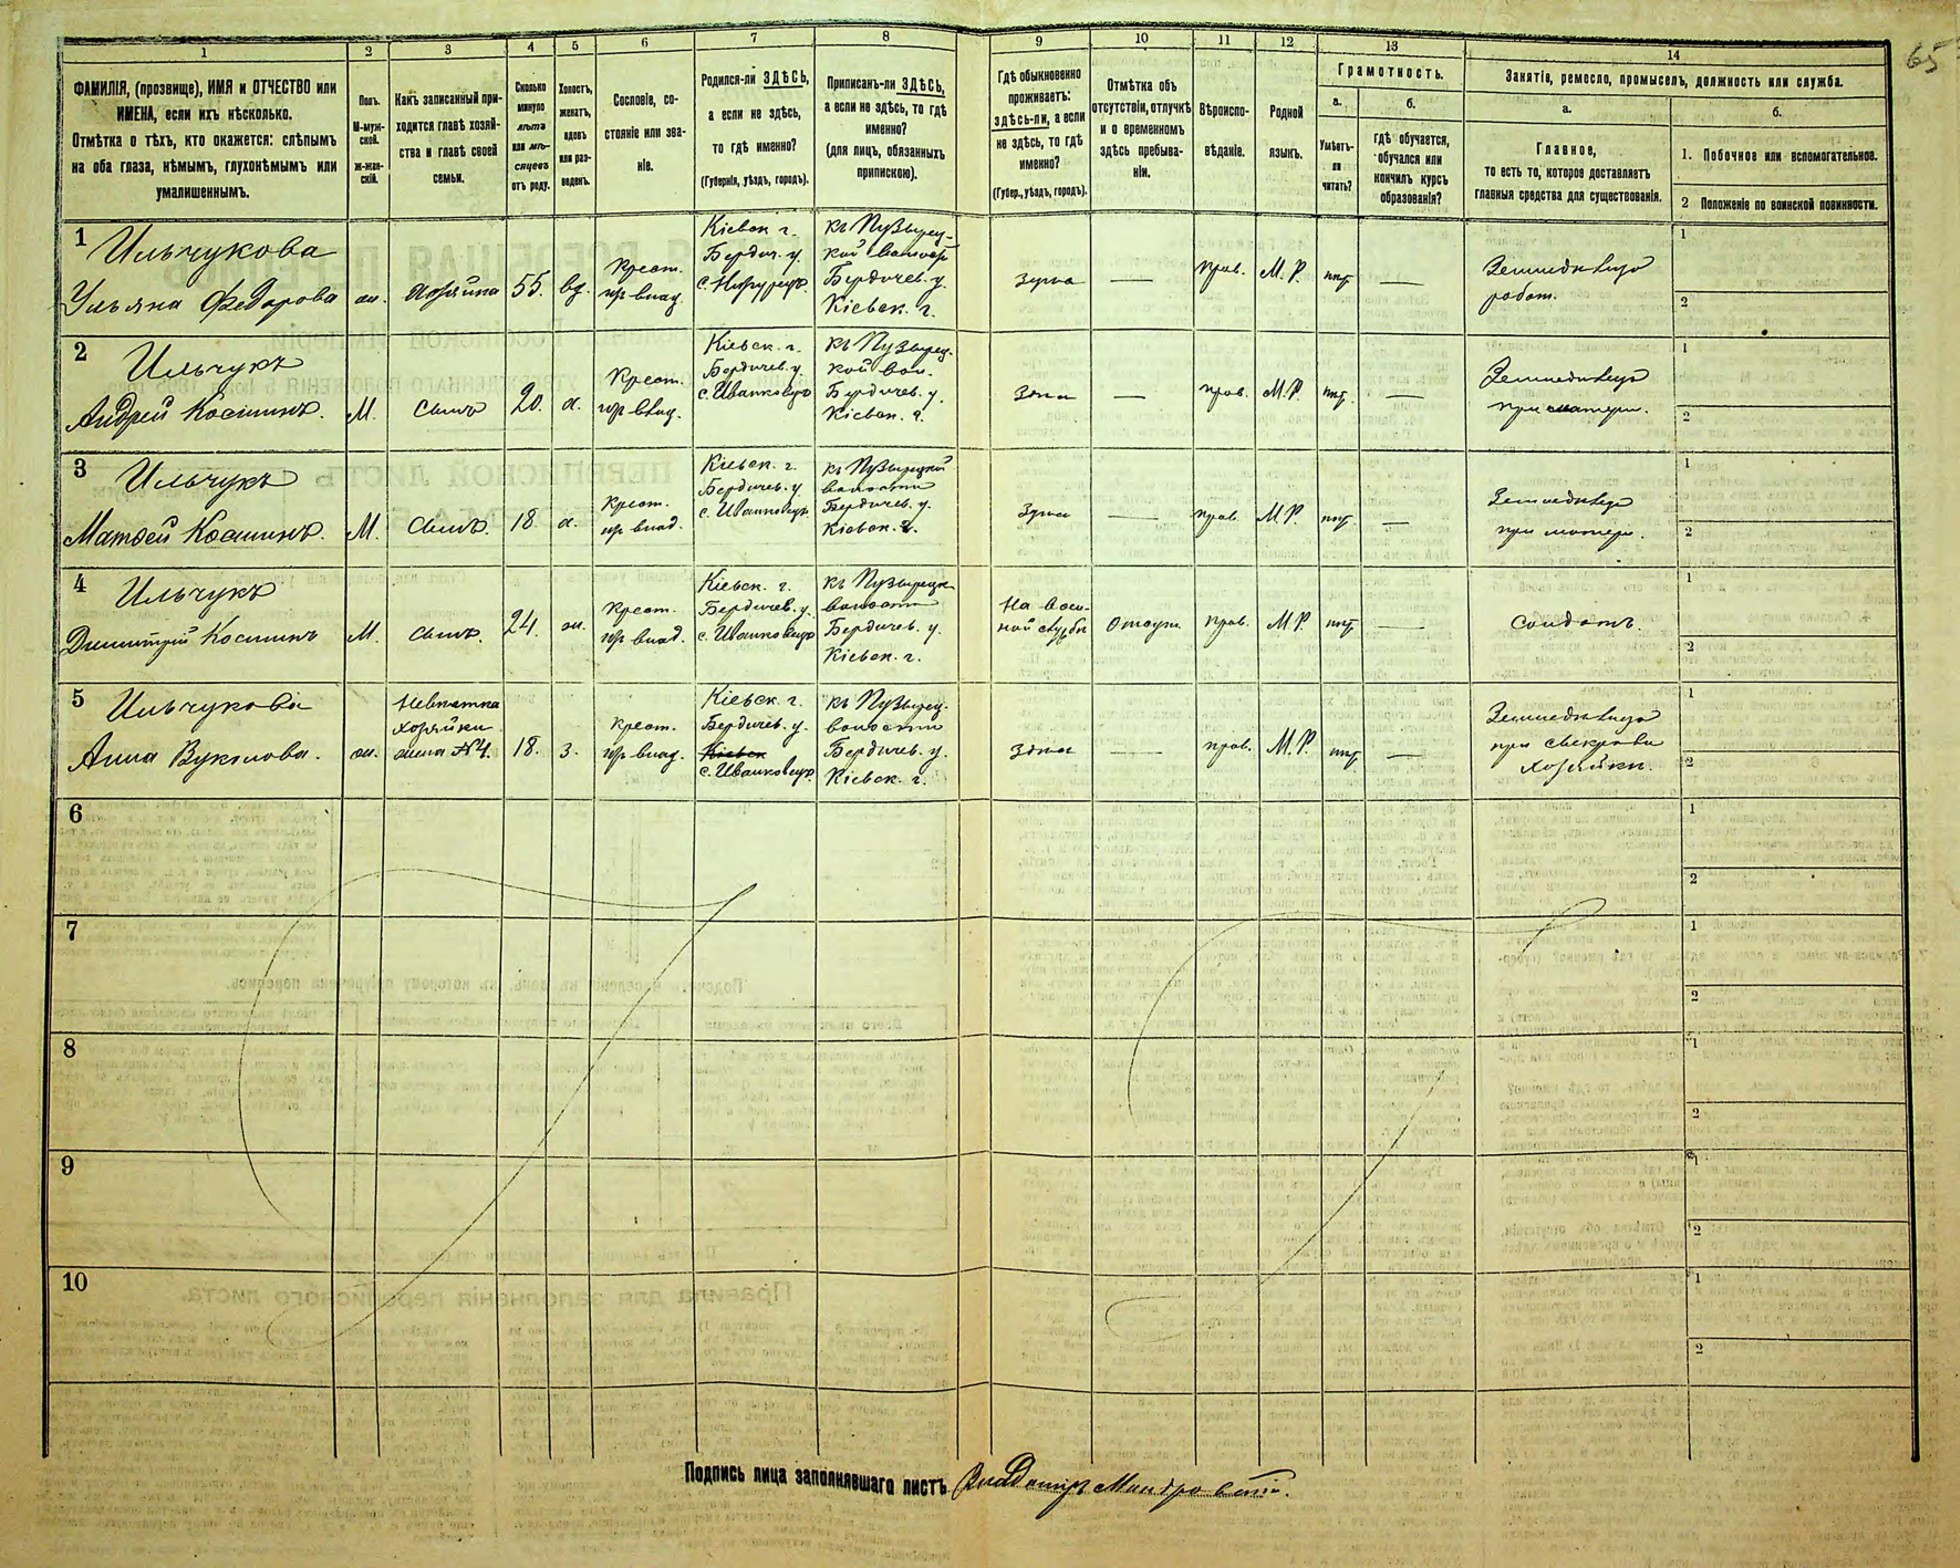 65
1
2
3
4
5
6
7
8
9
10
11
12
13
14
ФАМИЛІЯ, (прозвище), ИМЯ и ОТЧЕСТВО или
ИМЕНА, если ихъ нѣсколько.
Отмѣтка о тѣхъ, кто окажется: слѣпымъ
на оба глаза, нѣмымъ, глухонѣмымъ или
умалишеннымъ.
Полъ.
М-муж-
ской.
ж-жен-
скій.
Какъ записанный при-
ходится главѣ хозяй-
ства и главѣ своей
семьи.
Сколько
минуло
лѣтъ
или мѣ-
сяцевъ
отъ роду.
Холостъ,
женатъ,
вдовъ
или раз-
веденъ.
Сословіе, со-
стояніе или зва-
ніе.
Родился-ли ЗДѢСЬ,
а если не здѣсь,
то гдѣ именно?
(Губернія, уѣздъ, городъ).
Приписанъ-ли ЗДѢСЬ,
а если не здѣсь, то гдѣ
именно?
(для лицъ, обязанныхъ
припискою).
Гдѣ обыкновенно
проживаетъ:
здѣсь-ли, а если
не здѣсь, то гдѣ
именно?
(Губер., уѣздъ, городъ).
Отмѣтка объ
отсутствіи, отлучкѣ
и о временномъ
здѣсь пребыва-
ніи.
Вѣроиспо-
вѣданіе.
Родной
языкъ.
Грамотность.
а.
Умѣетъ-
ли
читать?
б.
Гдѣ обучается,
обучался или
кончилъ курсъ
образованія?
Занятіе, ремесло, промыселъ, должность или служба.
а.
Главное,
то есть то, которое доставляетъ
главныя средства для существованія.
б.
1. Побочное или вспомогательное.
2 Положеніе по воинской повинности.
1
Ильчукова
Ульяна Федорова
ж.
хозяйка
55.
вд.
Крест.
гр. влад.
Кіевск. г.
Бердич. у.
къ Пузырец-
кой волости
Бердичев. у.
Кіевск. г.
здѣсь
—
прав.
М. Р.
нѣт
—
Земледѣлецъ
работ.
1
2
2
Ильчукъ
Андрей Косьминъ.
М.
сынъ
20.
х.
Крест.
гр. влад.
Кіевск. г.
Бердичев. у.
с. Иванковцы
къ Пузырец-
кой вол.
Бердичев. у.
Кіевск. г.
здѣсь
—
прав.
М. Р.
нѣт
—
Земледѣлецъ
при матери.
1
2
3
Ильчукъ
Матвей Косьминъ.
М.
сынъ.
18
х.
Крест.
гр. влад.
Кіевск. г.
Бердичев. у.
с. Иванковцы
къ Пузырецкой
волости
Бердичев. у.
Кіевск. г.
здѣсь
—
прав.
М. Р.
нѣт
—
Земледѣлецъ
при матери.
1
2
4
Ильчукъ
Димитрій Косьминъ
М.
сынъ.
24.
ж.
Крест.
гр. влад.
Кіевск. г.
Бердичев. у.
с. Иванковцы
къ Пузырецк
волости
Бердичев. у.
Кіевск. г.
На воен-
ной службѣ
Отсут.
прав.
М. Р.
нѣт
—
Солдатъ.
1
2
5
Ильчукова
Анна Вуколова.
ж.
Невѣстка
хозяйки
жена №4.
18.
з.
Крест.
гр. влад.
Кіевск. г.
Бердичев. у.
Кіевск
с. Иванковцы
къ Пузырец.
волости
Бердичев. у.
Кіевск. г.
здѣсь
—
прав.
М. Р.
нѣт
—
Земледѣлецъ
при свекрови
хозяйки.
1
2
6
1
2
7
1
2
8
1
2
9
1
2
10
1
2
Подпись лица заполнявшаго листъ Владиміръ